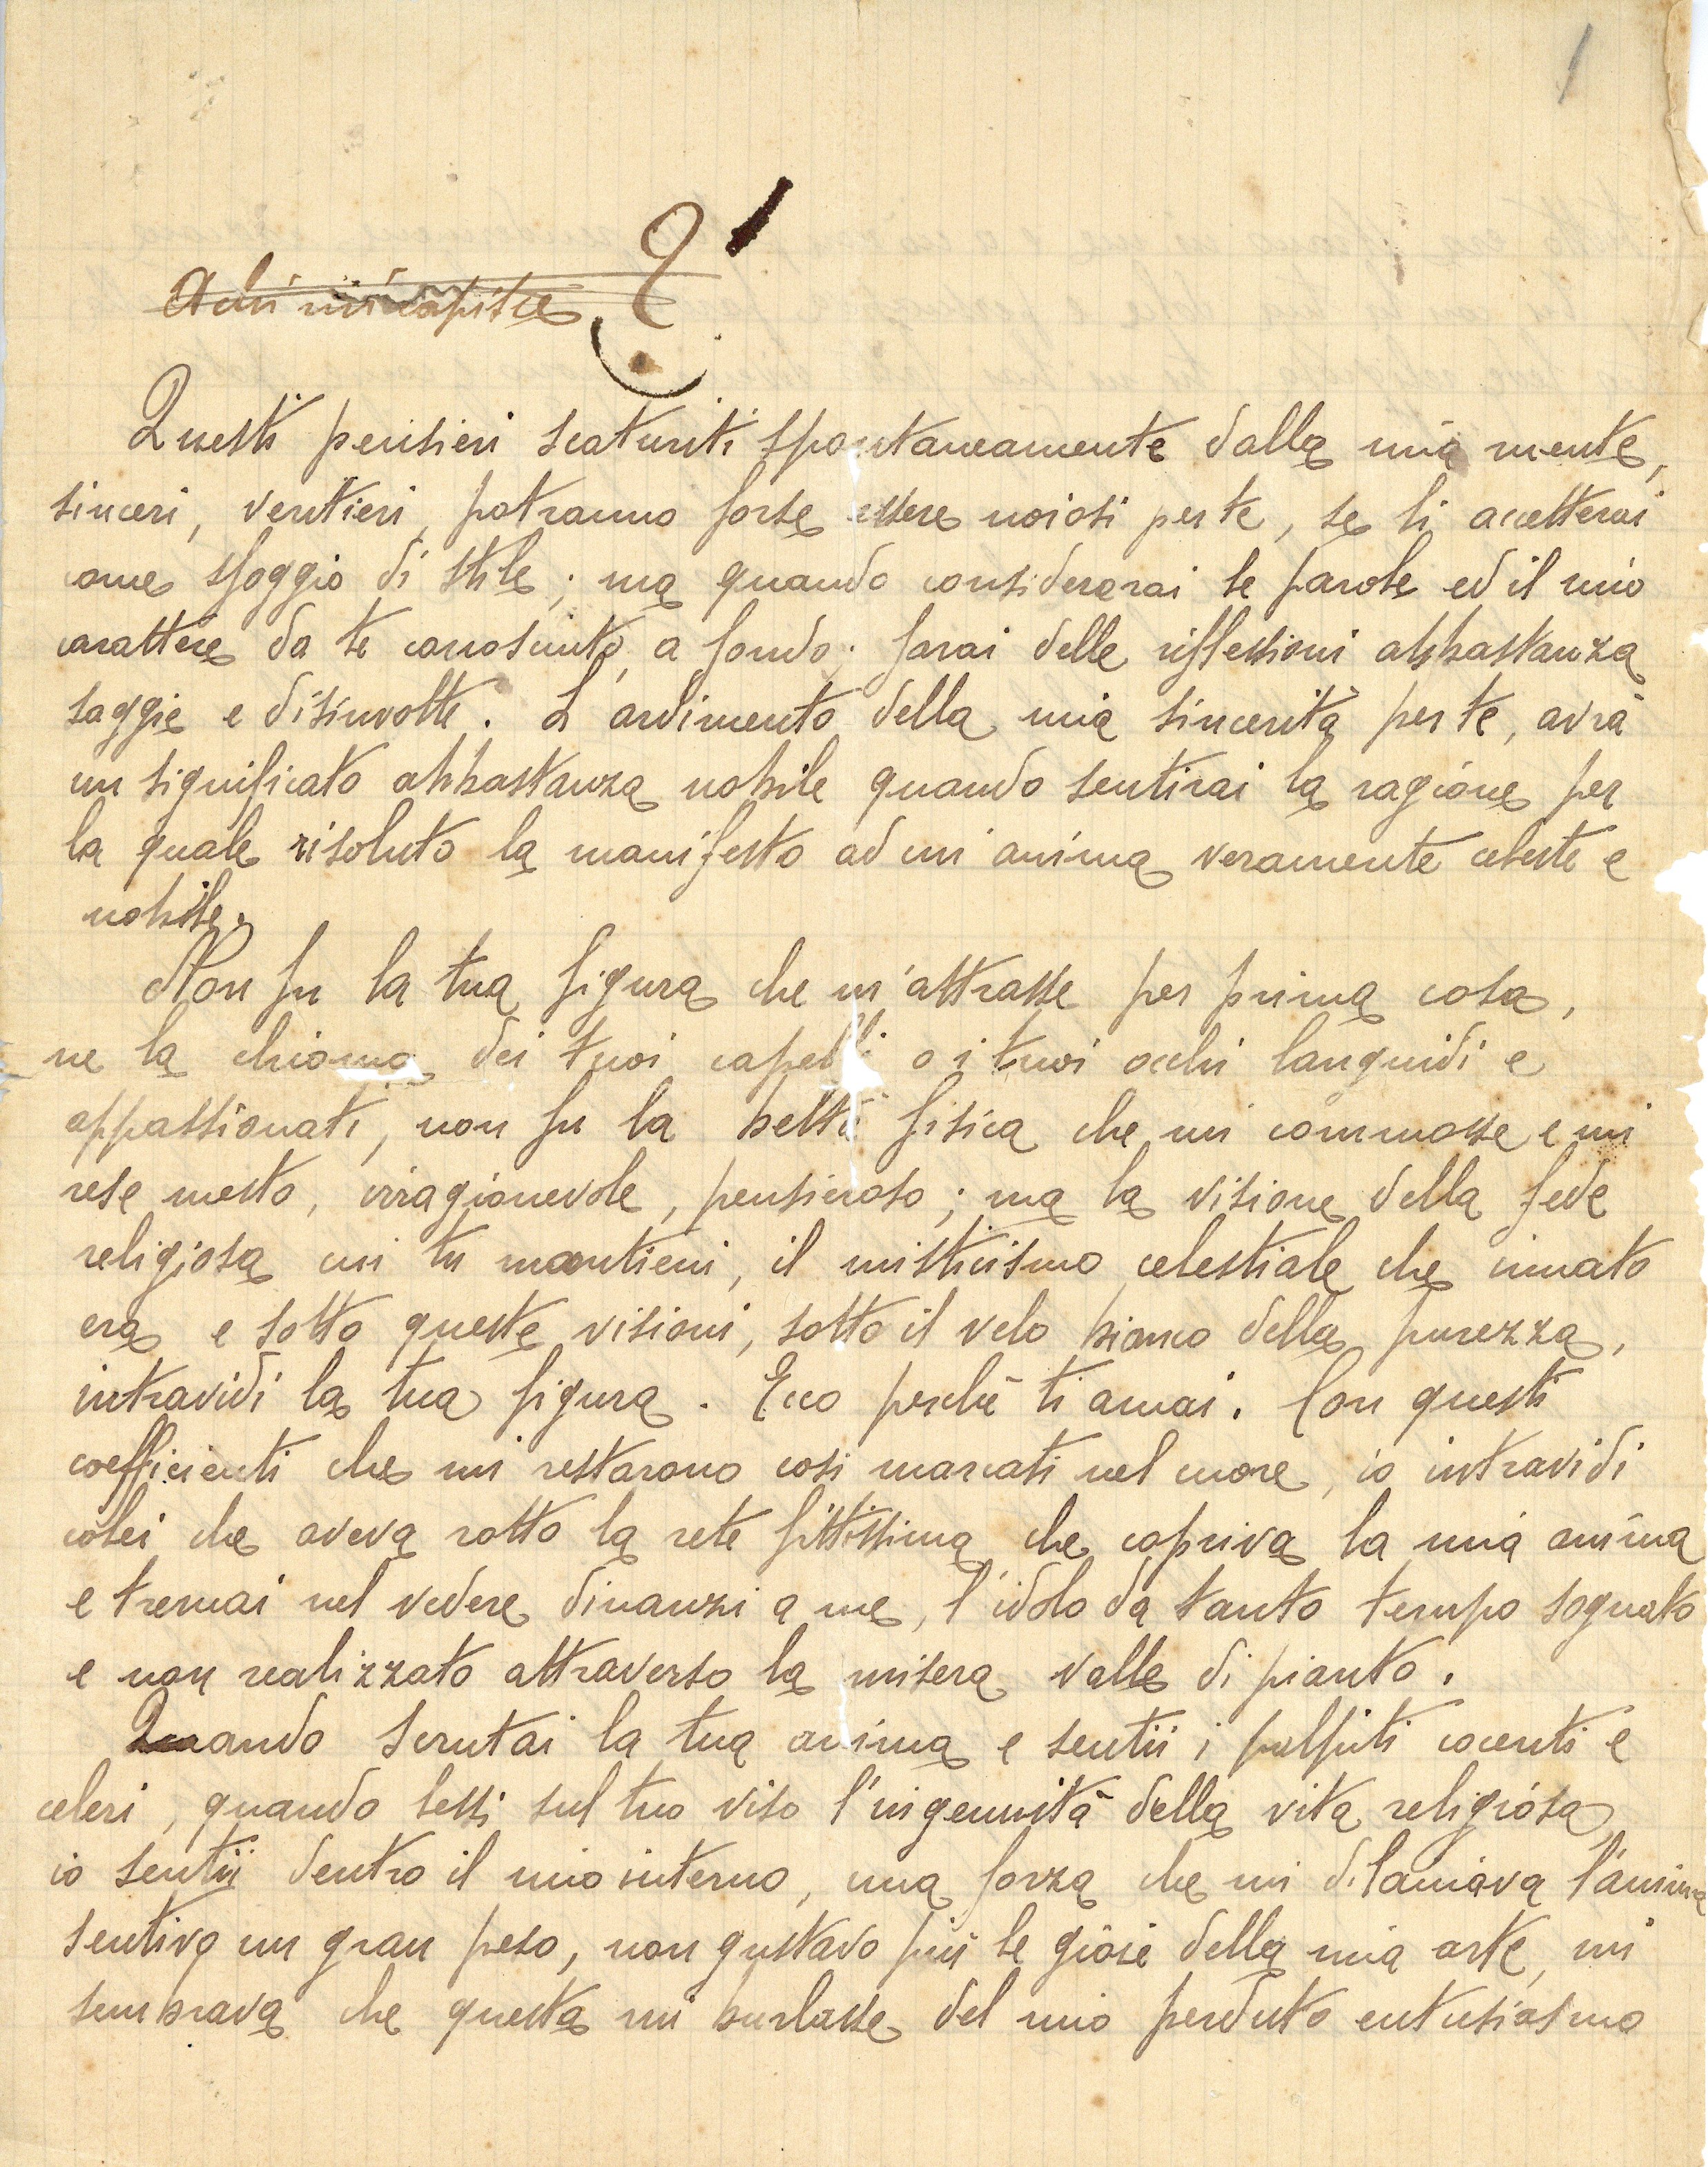 1
A chi mi capisce ?
Questi pensieri scaturiti spontaneamente dalla mia mente,
sinceri, veritieri, potranno forse essere noiosi per te, se li accetterai
come sfoggio di stile; ma quando considererai le parole ed il mio
carattere da te conosciuto, a fondo; farai delle riflessioni abbastanza
saggie e disinvolte. L'ardimento della mia sincerità per te, avrà
un significato abbastanza nobile quando sentirai la ragione per
la quale risoluto la manifesto ad un anima veramente celeste e
nobile.
Non fu la tua figura che m'attrasse per prima cosa,
ne la chioma dei tuoi capelli o i tuoi occhi languidi e
appassionati, non fu la beltà fisica che mi commosse e mi
rese mesto, irragionevole, pensieroso; ma la visione della fede
religiosa cui tu mantieni, il misticismo celestiale che innato
era e sotto queste visioni, sotto il velo bianco della purezza,
intravidi la tua figura. Ecco perchè ti amai. Con questi
coefficienti che mi restarono cosi marcati nel cuore, io intravidi
colei che aveva rotto la rete fittissima che copriva la mia anima
e tremai nel vedere dinanzi a me, l'idolo da tanto tempo sognato
e non realizzato attraverso la misera valle di pianto.
Quando scrutai la tua anima e sentii i palpiti cocenti e
celeri, quando lessi sul tuo viso l'ingenuità della vita religiosa,
io sentii dentro il mio interno, una forza che mi dilaniava l'anima
sentivo un gran peso, non gustavo più le gioie della mia arte, mi
sembrava che questa mi burlasse del mio perduto entusiasmo